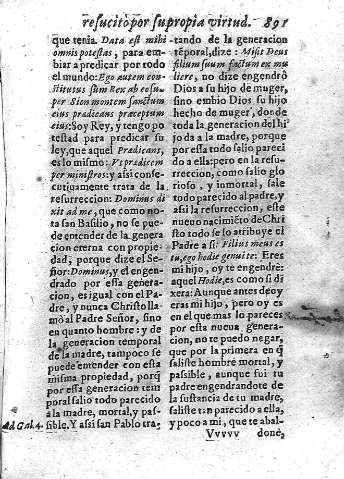 resucitò por su propia virtud. 891
que tenia. Data est mihi
omnis potestas, para em-
biar a predicar por todo
el mundo: Ego autem con-
stitutus sum Rex ab eo su-
per Sion montem sanctum
eius prædicans præceptum
eius: Soy Rey, y tengo po-
testad para predicar su
ley, que aquel Prædicans,
es lo mismo: Vt prædicem
per ministros: y assi conse-
cutiuamente trata de la
resurreccion: Dominus di-
xit ad me, que como no-
ta san Basilio, no se pue-
de entender de la genera
cion eterna con propie-
dad, porque dize el Se-
ñor: Dominus, y el engen-
drado por essa genera-
cion, es igual con el Pa-
dre, y nunca Christo lla-
mó al Padre Señor, sino
en quanto hombre: y de
la generacion temporal
de la madre, tampoco se
puede entender con esta
misma propiedad, porq̃
por essa generacion tem
poral salio todo parecido
a la madre, mortal, y pas-
Ad. Gal. 4. sible. Y assi san Pablo tra-
tando de la generacion
tẽporal, dize: Misit Deus
filium suum factum ex mu
liere, no dize engendrò
Dios a su hijo de muger,
sino embio Dios su hijo
hecho de muger, donde
toda la generacion del hi
jo da a la madre, porque
por essa todo salio pareci
do a ella: pero en la resu-
rreccion, como salio glo
rioso, y inmortal, sale
todo parecido al padre, y
assi la resurreccion, este
nueuo nacimiẽto de Chri
sto todo se lo atribuye el
Padre a si: Filius meus es
tu, ego hodie genui te: Eres
mi hijo, oy te engendrè:
aquel Hodie, es como si di
xera: Aunque antes de oy
eras mi hijo, pero oy es
en el que mas lo pareces
por esta nueua genera-
cion, no te puedo negar,
que por la primera en q̃
saliste hombre mortal, y
passible, aunque fui tu
padre engendrandote de
la sustancia de tu madre,
saliste tan parecido a ella,
y poco a mi, que te abal-
Vvvvv done,